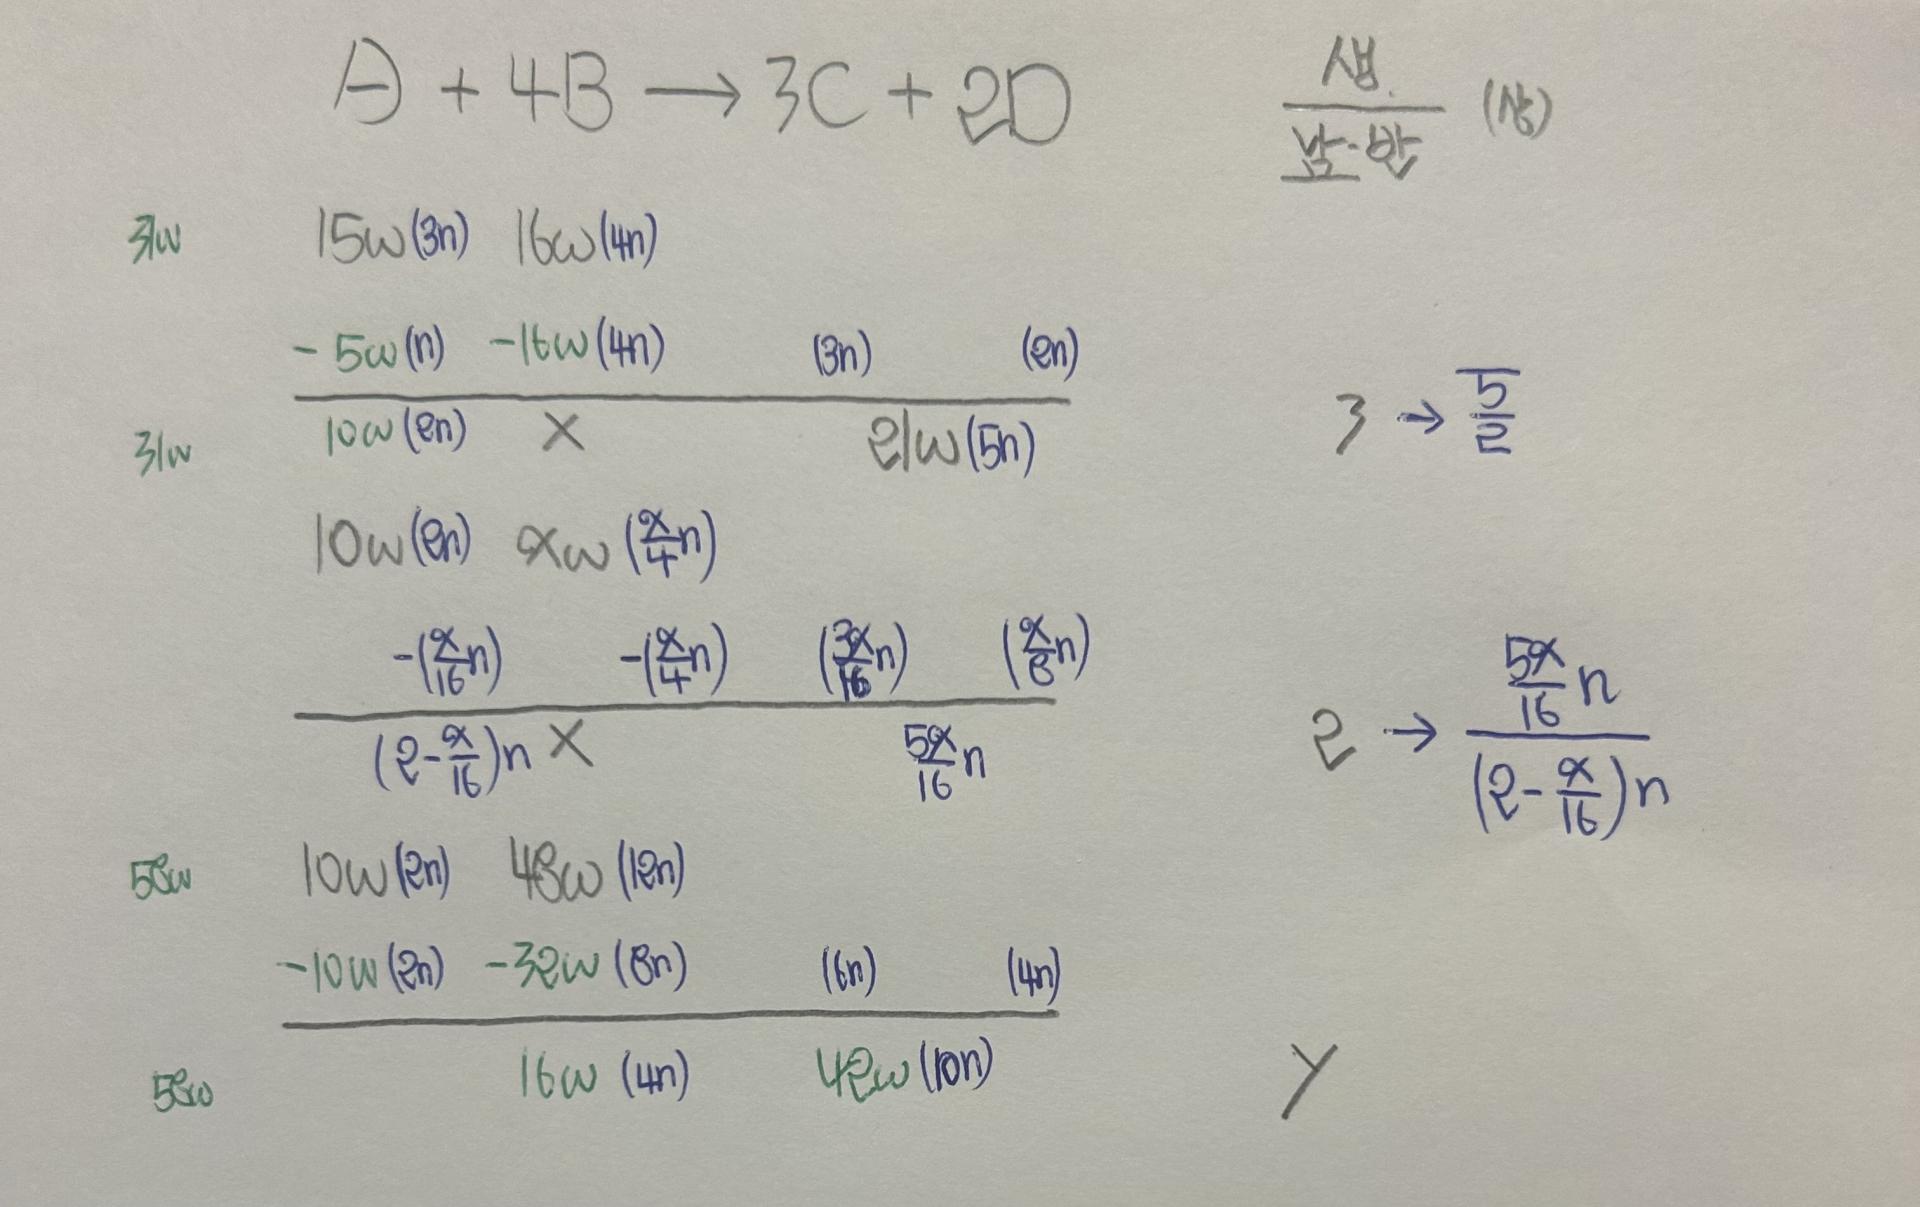 A + 4B → 3C + 2D 생. / 남·반 (상)
31w 15w(3n) 16w(4n)
-5w(n) -16w(4n) (3n) (2n)
31w 10w(2n) × 21w(5n) 3 → 5/2
10w(2n) xw (x/4 n)
-(x/16 n) -(x/4 n) (3x/16 n) (x/8 n)
(2-x/16)n × 5x/16 n 2 → 5x/16 n / (2-x/16)n
58w 10w(2n) 48w (12n)
-10w(2n) -32w (8n) (6n) (4n)
58w 16w (4n) 42w (10n) y